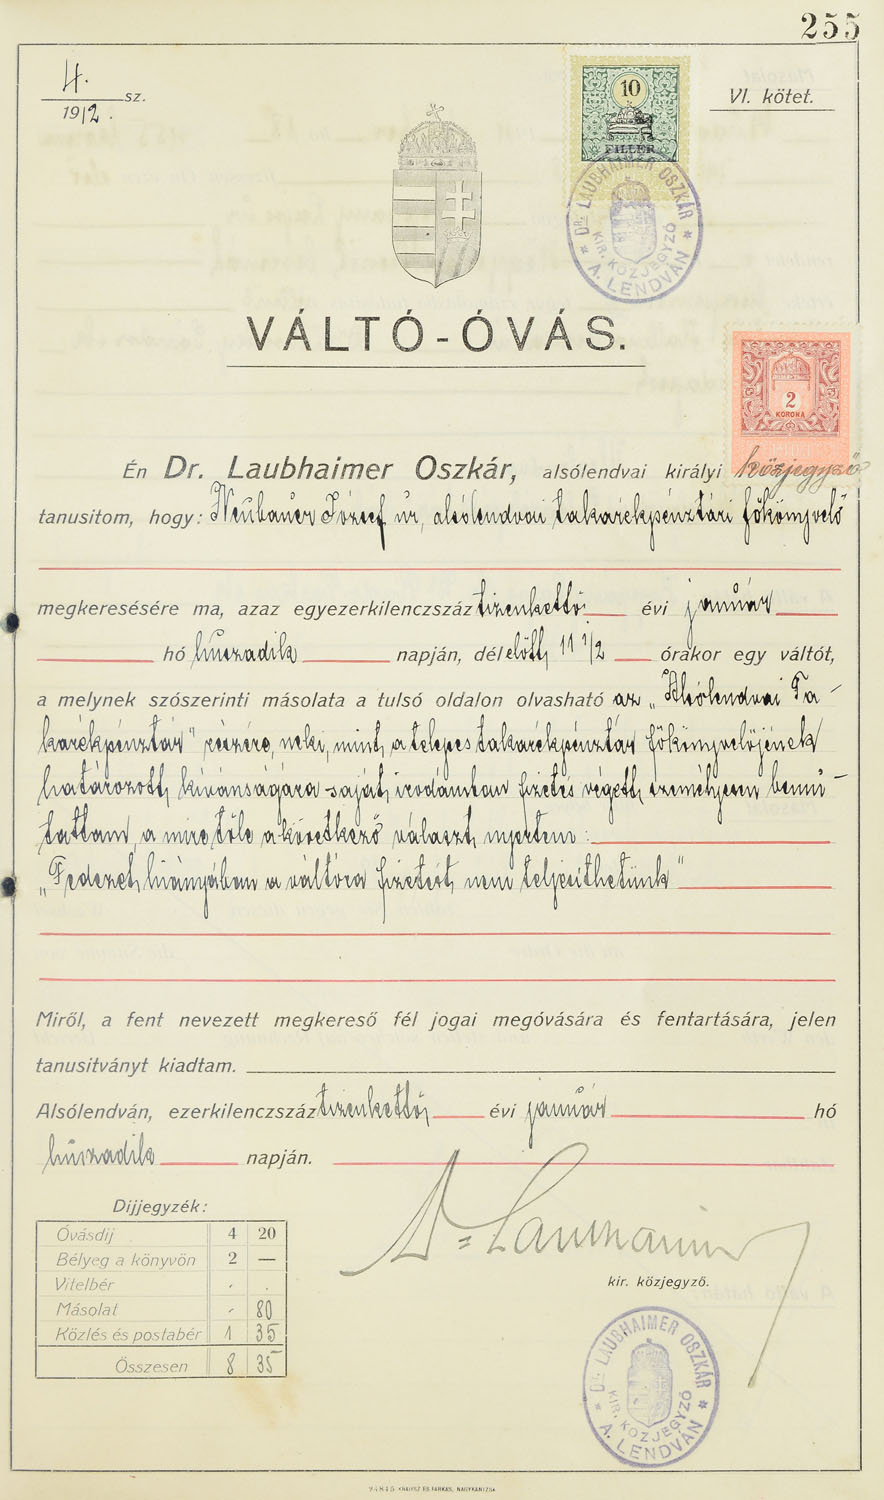 255
4. sz.
1912.
VI. kötet.
10
FILLÉR
DR. LAUBHAIMER OSZKÁR
KIR. KÖZJEGYZŐ
* A. LENDVÁN *
VÁLTÓ-ÓVÁS.
2
KORONA
Én Dr. Laubhaimer Oszkár, alsólendvai királyi közjegyző
tanusitom, hogy: Neubauer József úr, alsólendvai takarékpénztári főkönyvelő
megkeresésére ma, azaz egyezerkilenczszáz tizenkettő évi január
hó huszadik napján, délelőtt 11 1/2 órakor egy váltót,
a melynek szószerinti másolata a tulsó oldalon olvasható az „Alsólendvai Ta-
karékpénztár" részére, neki, mint a telepes takarékpénztár főkönyvelőjének
határozott kívánságára saját irodámban fizetés végett személyesen bemu-
tattam, a mire tőle a következő választ nyertem:
„Fedezet hiányában a váltóra fizetést nem teljesíthetünk"
Miről, a fent nevezett megkereső fél jogai megóvására és fentartására, jelen
tanusitványt kiadtam.
Alsólendván, ezerkilenczszáz tizenkettő évi január hó
huszadik napján.
Dijjegyzék:
Óvásdij 4 20
Bélyeg a könyvön 2 —
Vitelbér - .
Másolat - 80
Közlés és postabér 1 35
Összesen 8 35
Dr Laubhaimer
kir. közjegyző.
DR. LAUBHAIMER OSZKÁR
KIR. KÖZJEGYZŐ
* A. LENDVÁN *